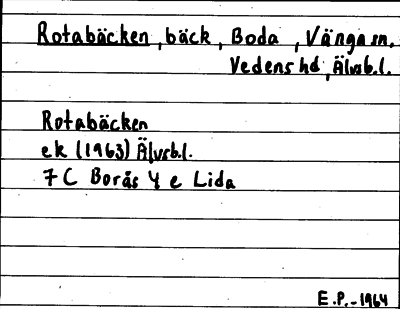 Rotabäcken, bäck, Boda, Vänga sn,
Vedens hd, Älvsb.l.
Rotabäcken
ek (1963) Älvsb.l.
7 C Borås 4 e Lida
E.P.-1964